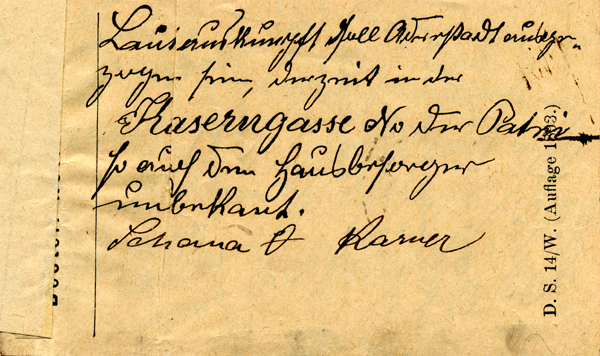 Lausauskunpft soll Aderstadt ausge„
zogen sein, derzeit in der
Kaserngasse No der Patri
so auch dem Hausbesorger
unbekant.
Karner
D. S. 14/W. (Auflage 1